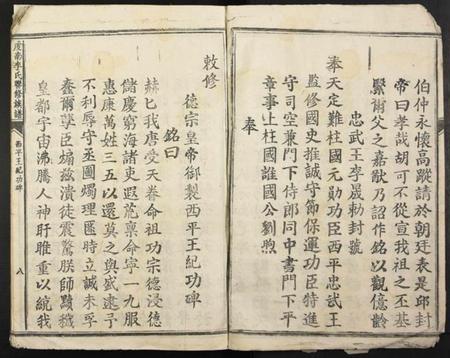 伯仲永懷高蹤請於朝廷表是邱封
帝曰孝哉胡可不從宣我祖之丕基
緊爾父之嘉猷乃詔作銘以觀億齡
忠武王李晟勅封號
奉天定難柱國元勛功臣西平忠武王
監修國史推誠守節保運功臣特進
守司空兼門下侍郎同中書門下平
章事上柱國趙國公劉煦
奉
敕修
德宗皇帝御製西平王紀功碑
銘曰
赫匕我唐受天眷命祖功宗德浸德
儲慶窮海諸吏遐荒稟命寧一九服
惠康萬姓三五以還莫之與盛逮予
不利辱守丕圖燭理匪時立誠未孚
蠢爾孽臣煽茲潰徒震驚朕師黷穢
皇都宇宙沸騰人神肝睢重以統我
度南李氏聯修族譜
西平王紀功碑
八